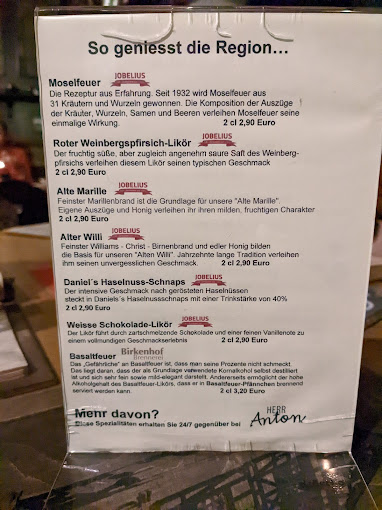 So geniesst die Region...
Moselfeuer JOBELIUS
Die Rezeptur aus Erfahrung. Seit 1932 wird Moselfeuer aus
31 Kräutern und Wurzeln gewonnen. Die Komposition der Auszüge
der Kräuter, Wurzeln, Samen und Beeren verleihen Moselfeuer seine
einmalige Wirkung. 2 cl 2,90 Euro
Roter Weinbergspfirsich-Likör JOBELIUS
Der fruchtig süße, aber zugleich angenehm saure Saft des Weinberg-
pfirsichs verleihen diesem Likör seinen typischen Geschmack
2 cl 2,90 Euro
Alte Marille JOBELIUS
Feinster Marillenbrand ist die Grundlage für unsere "Alte Marille".
Eigene Auszüge und Honig verleihen ihr ihren milden, fruchtigen Charakter
2 cl 2,90 Euro
Alter Willi JOBELIUS
Feinster Williams - Christ - Birnenbrand und edler Honig bilden
die Basis für unseren "Alten Willi". Jahrzehnte lange Tradition verleihen
ihm seinen unvergesslichen Geschmack. 2 cl 2,90 Euro
Daniel´s Haselnuss-Schnaps JOBELIUS
Der intensive Geschmack nach gerösteten Haselnüssen
steckt in Daniels Haselnussschnaps mit einer Trinkstärke von 40%
2 cl 2,90 Euro
Weisse Schokolade-Likör JOBELIUS
Der Likör führt durch zartschmelzende Schokolade und einer feinen Vanillenote zu
einem vollmundigen Geschmackserlebnis 2 cl 2,90 Euro
Basaltfeuer Birkenhof
Brennerei
Das „Gefährliche" an Basaltfeuer ist, dass man seine Prozente nicht schmeckt.
Das liegt daran, dass der als Grundlage verwendete Kornalkohol selbst destilliert
ist und sich sehr fein sowie mild-elegant darstellt. Andererseits ermöglicht der hohe
Alkoholgehalt des Basaltfeuer-Likörs, dass er in Basaltfeuer-Pfännchen brennend
serviert werden kann. 2 cl 3,20 Euro
Mehr davon?
Diese Spezialitäten erhalten Sie 24/7 gegenüber bei
HERR
Anton